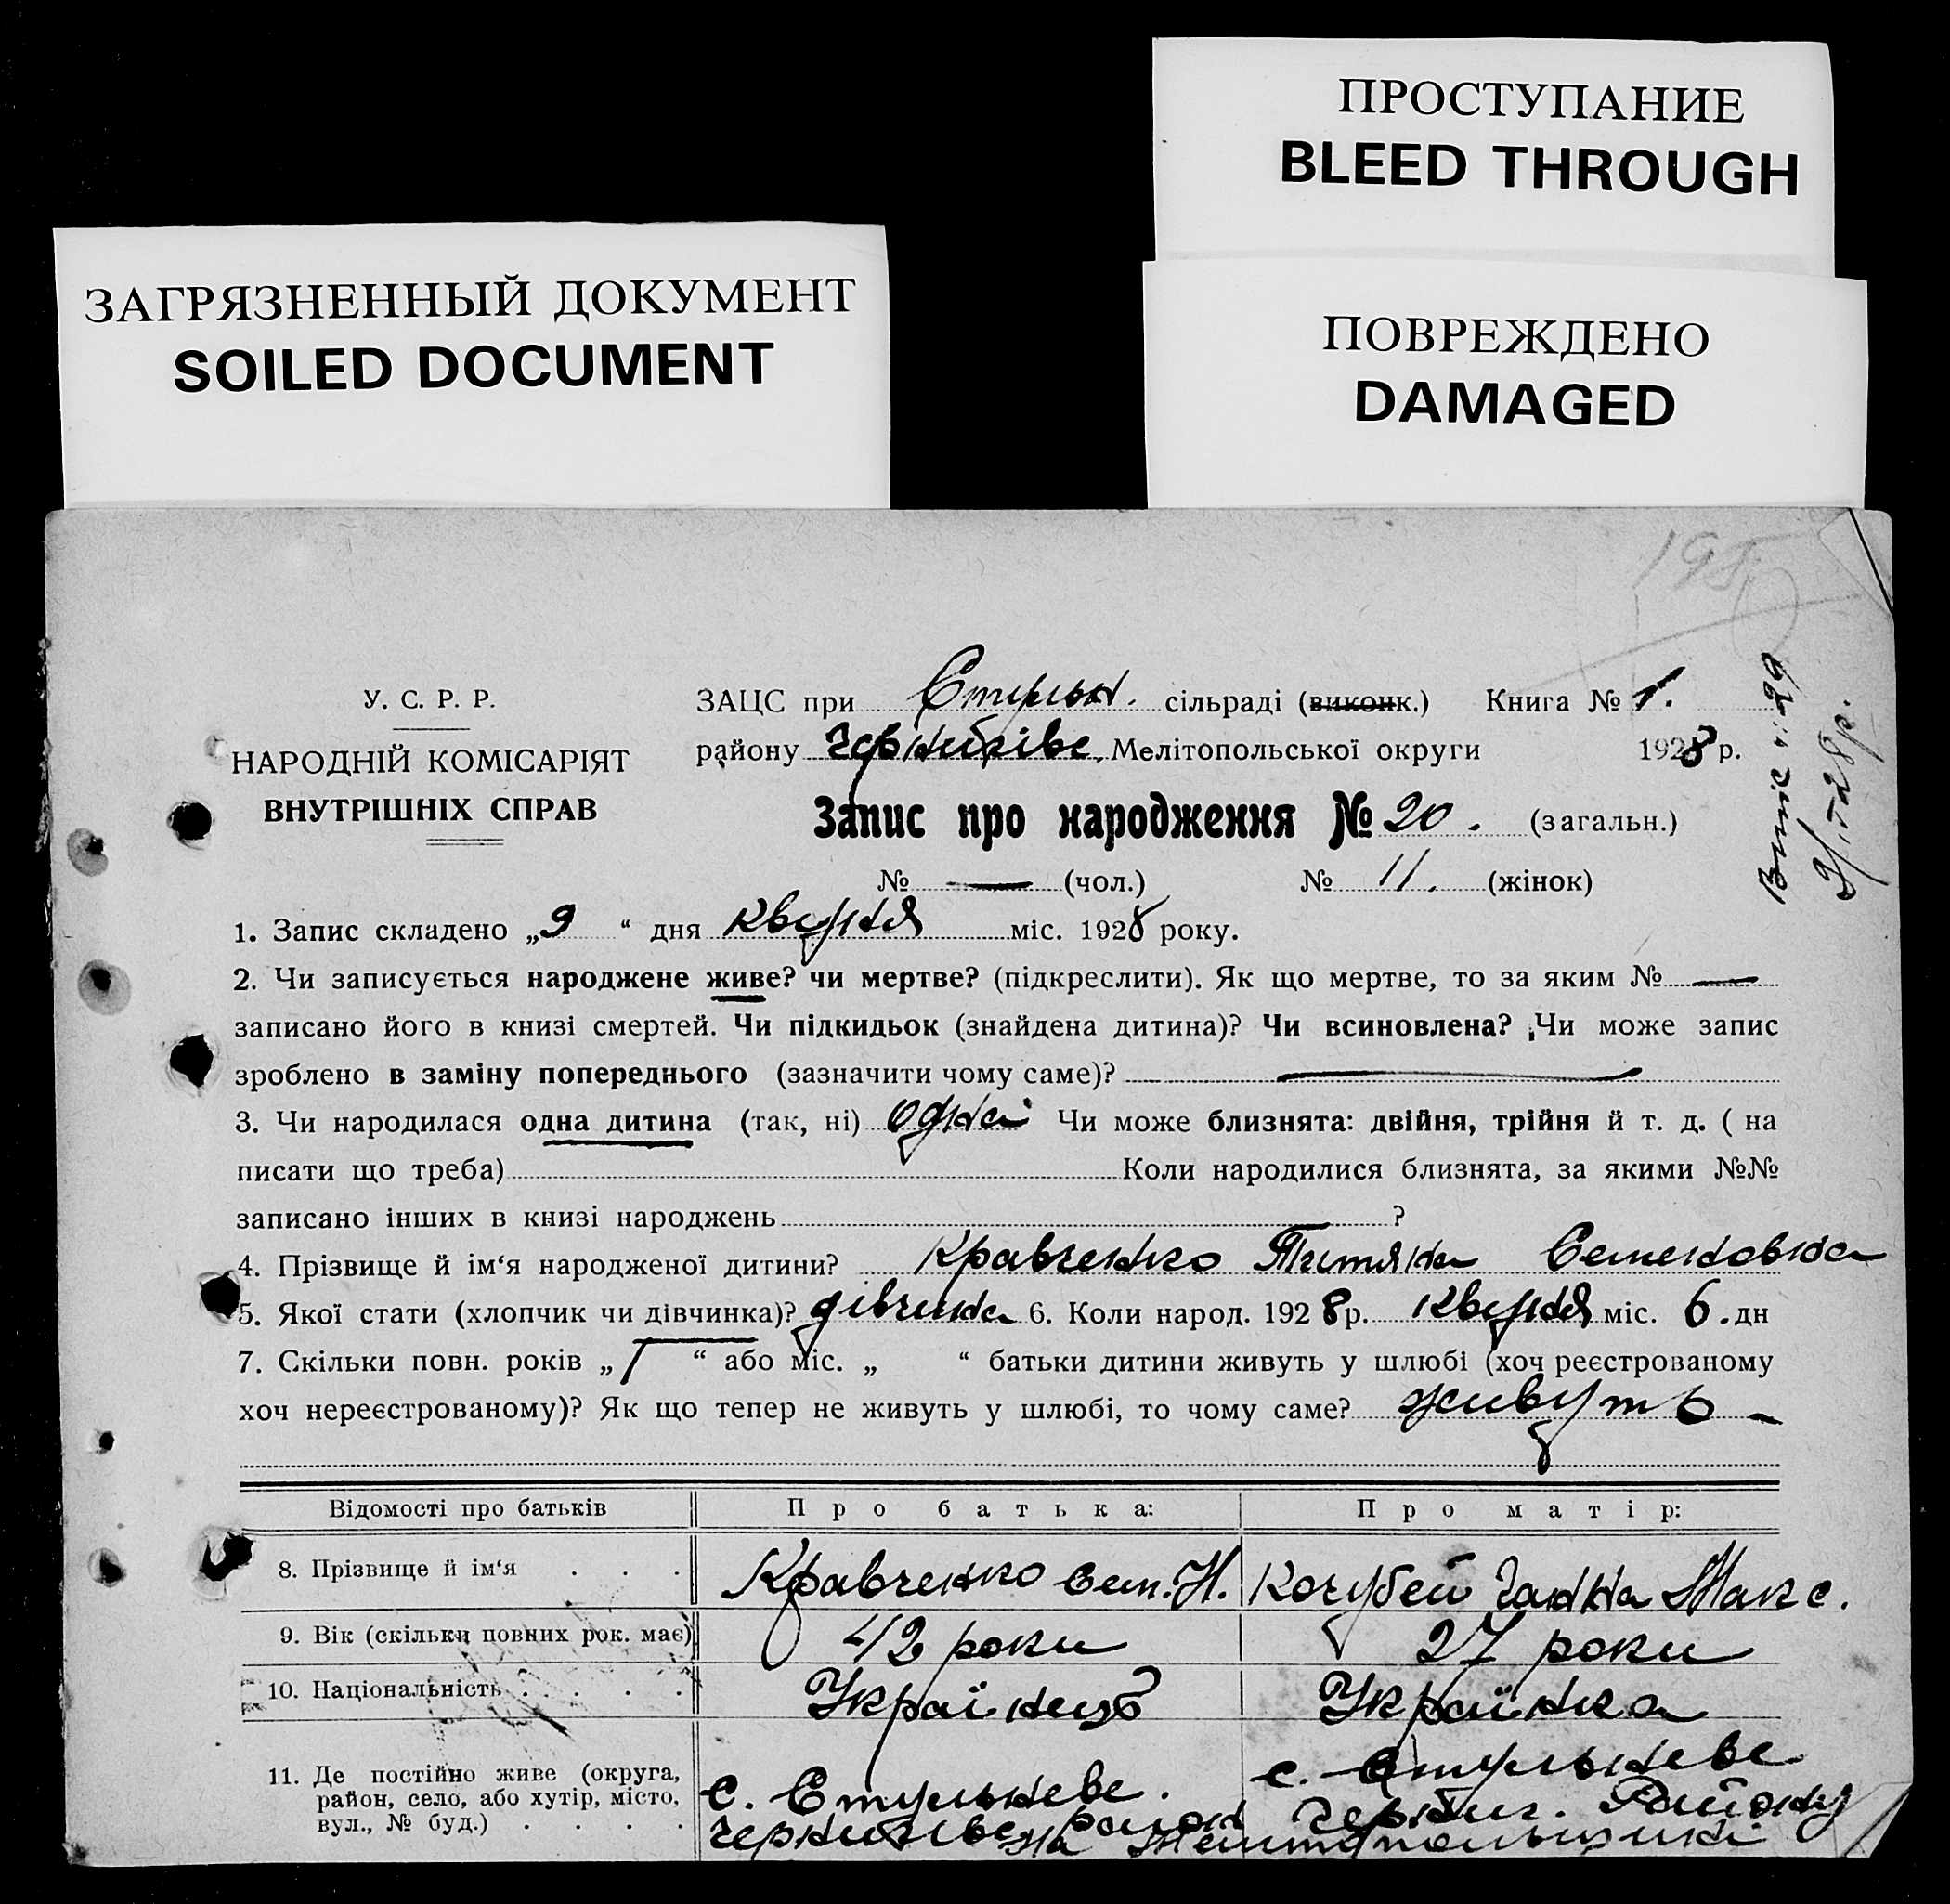 ПРОСТУПАНИЕ
BLEED THROUGH
ЗАГРЯЗНЕННЫЙ ДОКУМЕНТ
SOILED DOCUMENT
ПОВРЕЖДЕНО
DAMAGED
195
У. С. Р. Р.
НАРОДНІЙ КОМІСАРІЯТ
ВНУТРІШНІХ СПРАВ
ЗАЦС при сільраді (виконк.) Книга № 1.
району Мелітопольської округи 1928 р.
Запис про народження № 20. (загальн.)
№ — (чол.) № 11. (жінок)
1. Запис складено „9“ дня квітня міс. 1928 року.
2. Чи записується народжене живе? чи мертве? (підкреслити). Як що мертве, то за яким № —
записано його в книзі смертей. Чи підкидьок (знайдена дитина)? Чи всиновлена? Чи може запис
зроблено в заміну попереднього (зазначити чому саме)? —
3. Чи народилася одна дитина (так, ні) одна Чи може близнята: двійня, трійня й т. д. ( на
писати що треба) Коли народилися близнята, за якими №№
записано інших в книзі народжень ?
4. Прізвище й ім‘я народженої дитини? Кравченко Семеновна
5. Якої стати (хлопчик чи дівчинка)? дівчинка 6. Коли народ. 1928 р. квітня міс. 6. дн
7. Скільки повн. років „1“ або міс. „ “ батьки дитини живуть у шлюбі (хоч реєстрованому
хоч нереєстрованому)? Як що тепер не живуть у шлюбі, то чому саме? живуть —
Відомості про батьків Про батька: Про матір:
8. Прізвище й ім‘я . . . Кравченко Сем. Н. Кочубей Ганна Макс.
9. Вік (скільки повних рок. має) 42 роки 27 роки
10. Національність . . . . Українець Українка
11. Де постійно живе (округа,
район, село, або хутір, місто,
вул., № буд.) . . . .
с. Стульневе.
с. Стульневе
район Черніг. Району
на Мелітопольщині